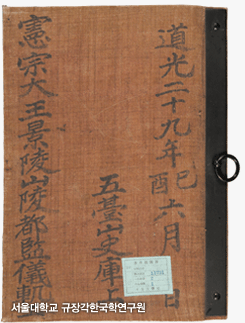 道光二十九年己酉六月 日
五臺山史庫上
憲宗大王景陵山陵都監儀軌
서울대학교 규장각한국학연구원